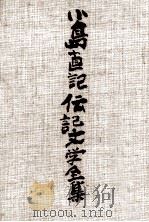 小島直記伝記文学全集